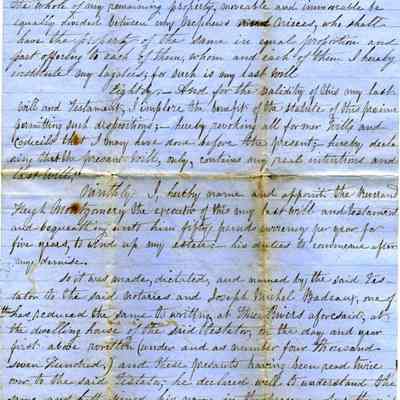 the whole of my remaining property, moveable and immoveable be
equally divided between my Nephews and Nieces, who shall
have the property of the same in equal proportion and
part offering to each of them, whom and each of them I hereby
institute my legatees, for such is my last Will
Eightly,- And for the validity of this my last
will and testament, I implore the benefit of the statute of this province
permitting such dispositions;- hereby revoking all former Wills and
Codicils that I may have done before the present; hereby decla
ring that the present Will, only, contains my real intentions and
last Will."
Ninthly. I, hereby name and appoint the Reverend
Hugh Montgomery the executor of this my last will and testament
and bequeathing unto him fifty pounds currency per year for
five years, to wind up my estate:- his duties to commence after
my demise.
so it was made, dictated, and named by the said Tes-
tator to the said notaries and Joseph Michel Badeaux, one of
them has reduced the same to writing, at Three Rivers aforesaid, at
the dwelling house of the said Testator, on the day and year
first above written (under and as number four thousand
seven Hundred,) and these presents having been read twice
over to the said Testator, he declared well to understand the
same and